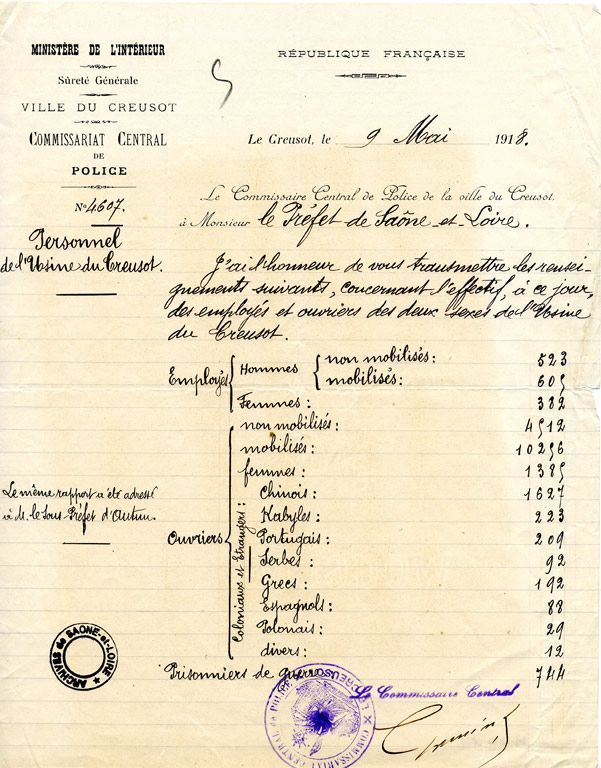 MINISTÈRE DE L'INTÉRIEUR
Sûreté Générale
VILLE DU CREUSOT
COMMISSARIAT CENTRAL
DE
POLICE
N° 4607.
Personnel
de l'Usine du Creusot.
RÉPUBLIQUE FRANÇAISE
Le Creusot, le 9 Mai 1918.
Le Commissaire Central de Police de la ville du Creusot
à Monsieur le Préfet de Saône-et-Loire.
J'ai l'honneur de vous transmettre les rensei-
gnements suivants, concernant l'effectif, à ce jour,
des employés et ouvriers des deux sexes de l'Usine
du Creusot.
Employés Hommes non mobilisés: 523
mobilisés: 605
Femmes: 382
Ouvriers non mobilisés: 4512
mobilisés: 10256
femmes: 1385
Coloniaux et Etrangers:
Chinois: 1627
Kabyles: 223
Portugais: 209
Serbes: 92
Grecs: 192
Espagnols: 88
Polonais: 29
divers: 12
Prisonniers de guerre 744
Le même rapport a été adressé
à M. le Sous-Préfet d'Autun.
ARCHIVES de SAONE-et-LOIRE
Le Commissaire Central
COMMISSARIAT CENTRAL DE POLICE